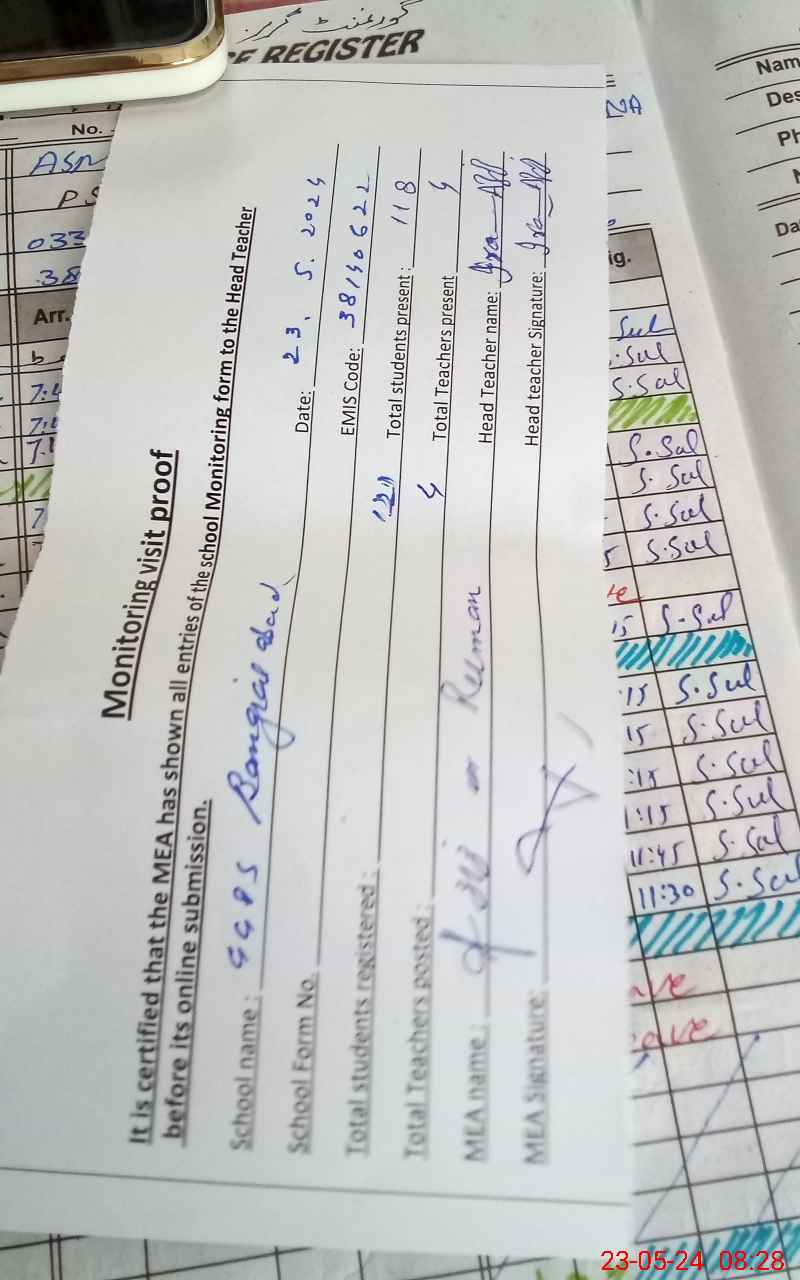 گورنمنٹ گرلز
CE REGISTER
Monitoring visit proof
It is certified that the MEA has shown all entries of the school Monitoring form to the Head Teacher
before its online submission.
School name : GGPS Date: 23. 5. 2024
School Form No. EMIS Code: 38140622
Total students registered : 121 Total students present : 118
Total Teachers posted : 4 Total Teachers present 4
MEA name : Head Teacher name:
MEA Signature: Head teacher Signature:
No.
ASM
PS
033
38
Arr.
7:4
Nam
Des
Ph
Da
ig.
S.Sul
S.Sul
S.Sul
S.Sul
S.Sul
S.Sul
15 S.Sul
:15 S.Sul
15 S.Sul
:15 S.Sul
1:15 S.Sul
11:45 S.Sul
11:30 S.Sul
ave
eave
23-05-24 08:28